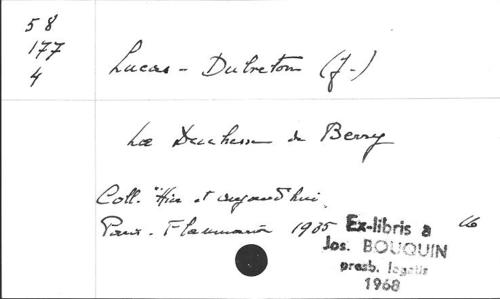 58
177
4
Lucas-Dubreton (J-)
La Duchesse de Berry
Coll. "Hier et aujourd'hui
Paris. Flammarion 1935
Ex-libris a
Jos. BOUQUIN
presb. legatis
1968